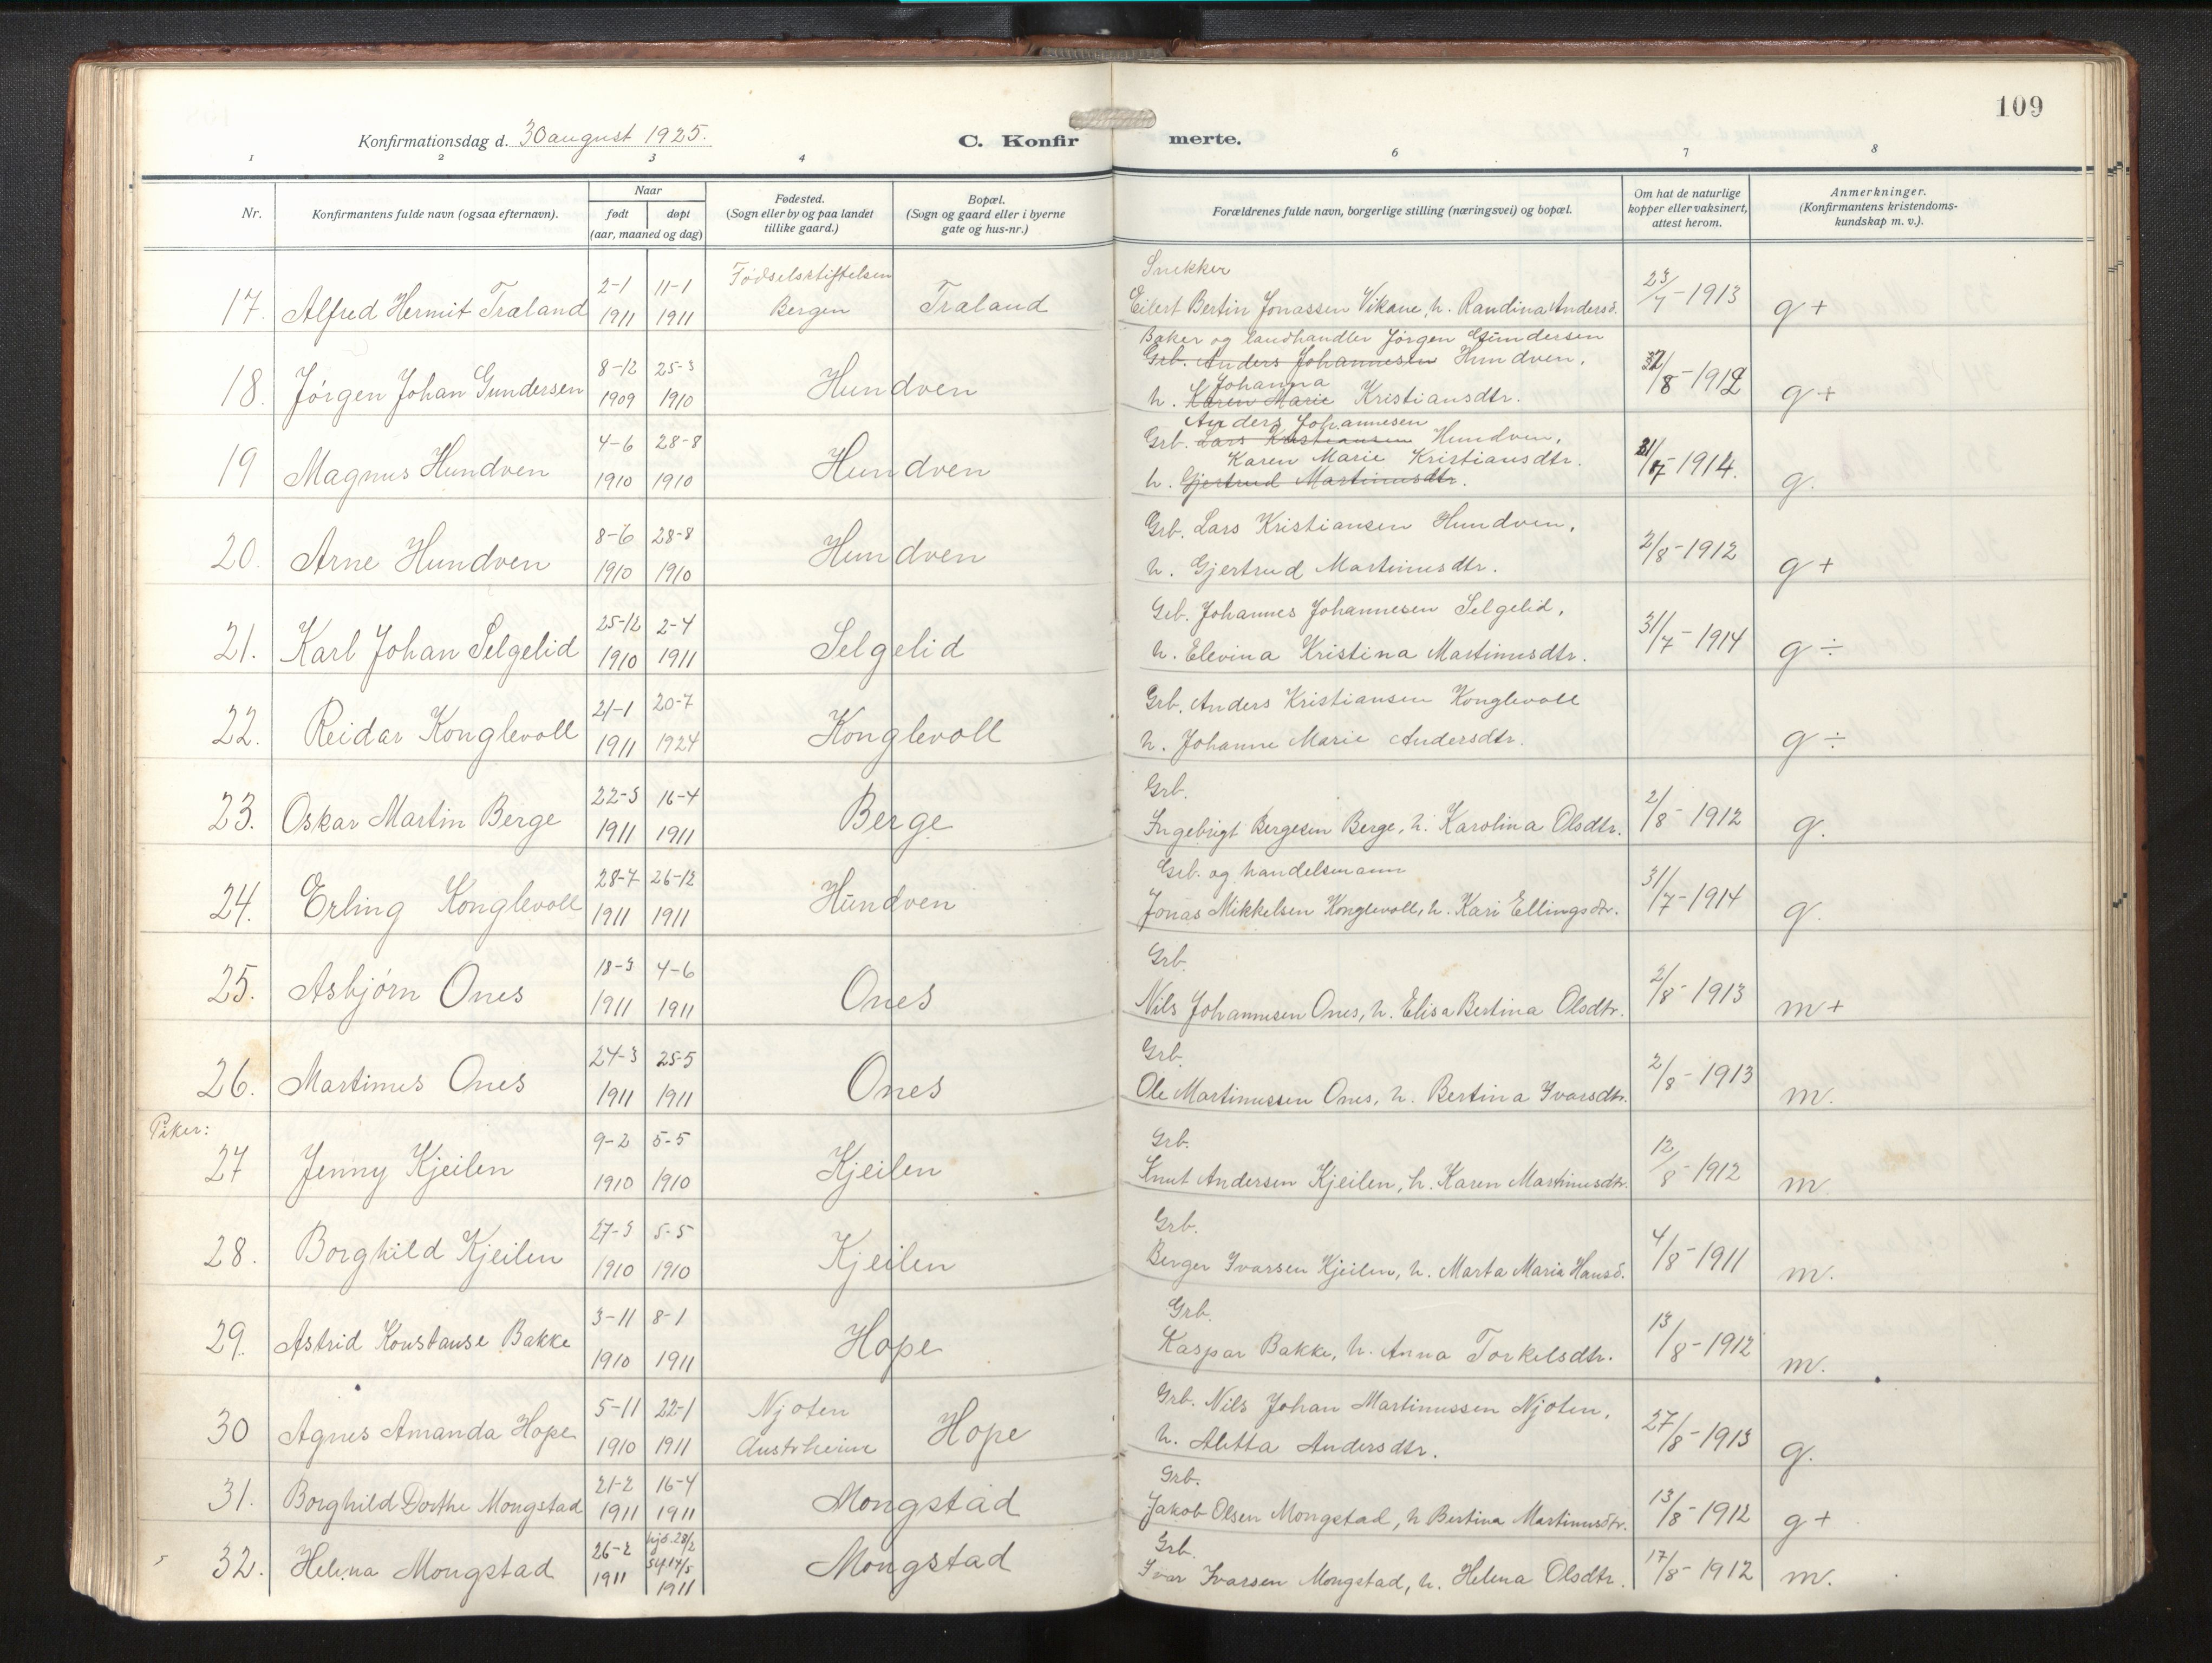 109
Konfirmationsdag d. 30 august 1925.
C. Konfirmerte.
1 2 3 4 6 7 8
Nr.
Konfirmantens fulde navn (ogsaa efternavn).
Naar
født døpt
(aar, maaned og dag)
Fødested.
(Sogn eller by og paa landet
tillike gaard.)
Bopæl.
(Sogn og gaard eller i byerne
gate og hus-nr.)
Forældrenes fulde navn, borgerlige stilling (næringsvei) og bopæl.
Om hat de naturlige
kopper eller vaksinert,
attest herom.
Anmerkninger.
(Konfirmantens kristendoms-
kundskap m. v.).
2-1 11-1 Fødselsstiftelsen Snekker
17. Alfred Hermit Træland 1911 1911 Bergen Træland Eilert Bertin Jonassen Vikane, h. Randina Andersd. 23/7-1913 g +
Baker og landhandler Jørgen Gundersen
8-12 25-3 Grb. Anders Johannesen Hundven,
Johanna
18. Jørgen Johan Gundersen 1909 1910 Hundven h. Karen Marie Kristiansdtr. /8-1912 g +
Anders Johannesen
4-6 28-8 Grb. Lars Kristiansen Hundven,
Karen Marie Kristiansdtr.
19 Magnus Hundven 1910 1910 Hundven h. Gjertrud Martinusdtr. 31/7-1914. g.
8-6 28-8 Grb. Lars Kristiansen Hundven,
20. Arne Hundven 1910 1910 Hundven h. Gjertrud Martinusdtr. 2/8-1912 g +
25-12 2-4 Grb. Johannes Johannesen Selgelid,
21. Karl Johan Selgelid 1910 1911 Selgelid h. Elevina Kristina Martinusdtr. 31/7-1914 g ÷
21-1 20-7 Grb. Anders Kristiansen Konglevoll
22. Reidar Konglevoll 1911 1924 Konglevoll h. Johanne Marie Andersdtr. g ÷
22-3 16-4 Grb.
23. Oskar Martin Berge 1911 1911 Berge Ingebrigt Bergesen Berge, h. Karolina Olsdtr. 2/8-1912 g.
28-7 26-12 Grb. og handelsmann
24. Erling Konglevoll 1911 1911 Hundven Jonas Mikkelsen Konglevoll, h. Kari Ellingsdtr. 31/7-1914 g.
18-3 4-6 Grb.
25. Asbjørn Ones 1911 1911 Ones Nils Johannesen Ones, h. Elisa Bertina Olsdtr. 2/8-1913 m +
24-3 25-5 Grb.
26. Martinus Ones 1911 1911 Ones Ole Martinussen Ones, h. Bertina Ivarsdtr. 2/8-1913 m.
Piker:
9-2 5-5 Grb.
27 Jenny Kjeilen 1910 1910 Kjeilen Knut Andersen Kjeilen, h. Karen Martinusdtr. 12/8-1912 m
27-3 5-5 Grb.
28. Borghild Kjeilen 1910 1910 Kjeilen Berger Ivarsen Kjeilen, h. Marta Maria Hansd. 4/8-1911 m.
3-11 8-1 Grb.
29. Astrid Konstanse Bakke 1910 1911 Hope Kaspar Bakke, h. Anna Torkelsdtr. 13/8-1912 m.
5-11 22-1 Njøten Grb. Nils Johan Martinussen Njøten,
30 Agnes Amanda Hope 1910 1911 Austrheim Hope h. Aletta Andersdtr. 27/8-1913 g.
21-2 16-4 Grb.
31. Borghild Dorthe Mongstad 1911 1911 Mongstad Jakob Olsen Mongstad, h Bertina Martinusdtr. 13/8-1912 g +
26-2 hjd. 28/2 Grb.
st. 14/5
32. Helena Mongstad 1911 1911 Mongstad Ivar Ivarsen Mongstad, h. Helena Olsdtr. 17/8-1912 m.